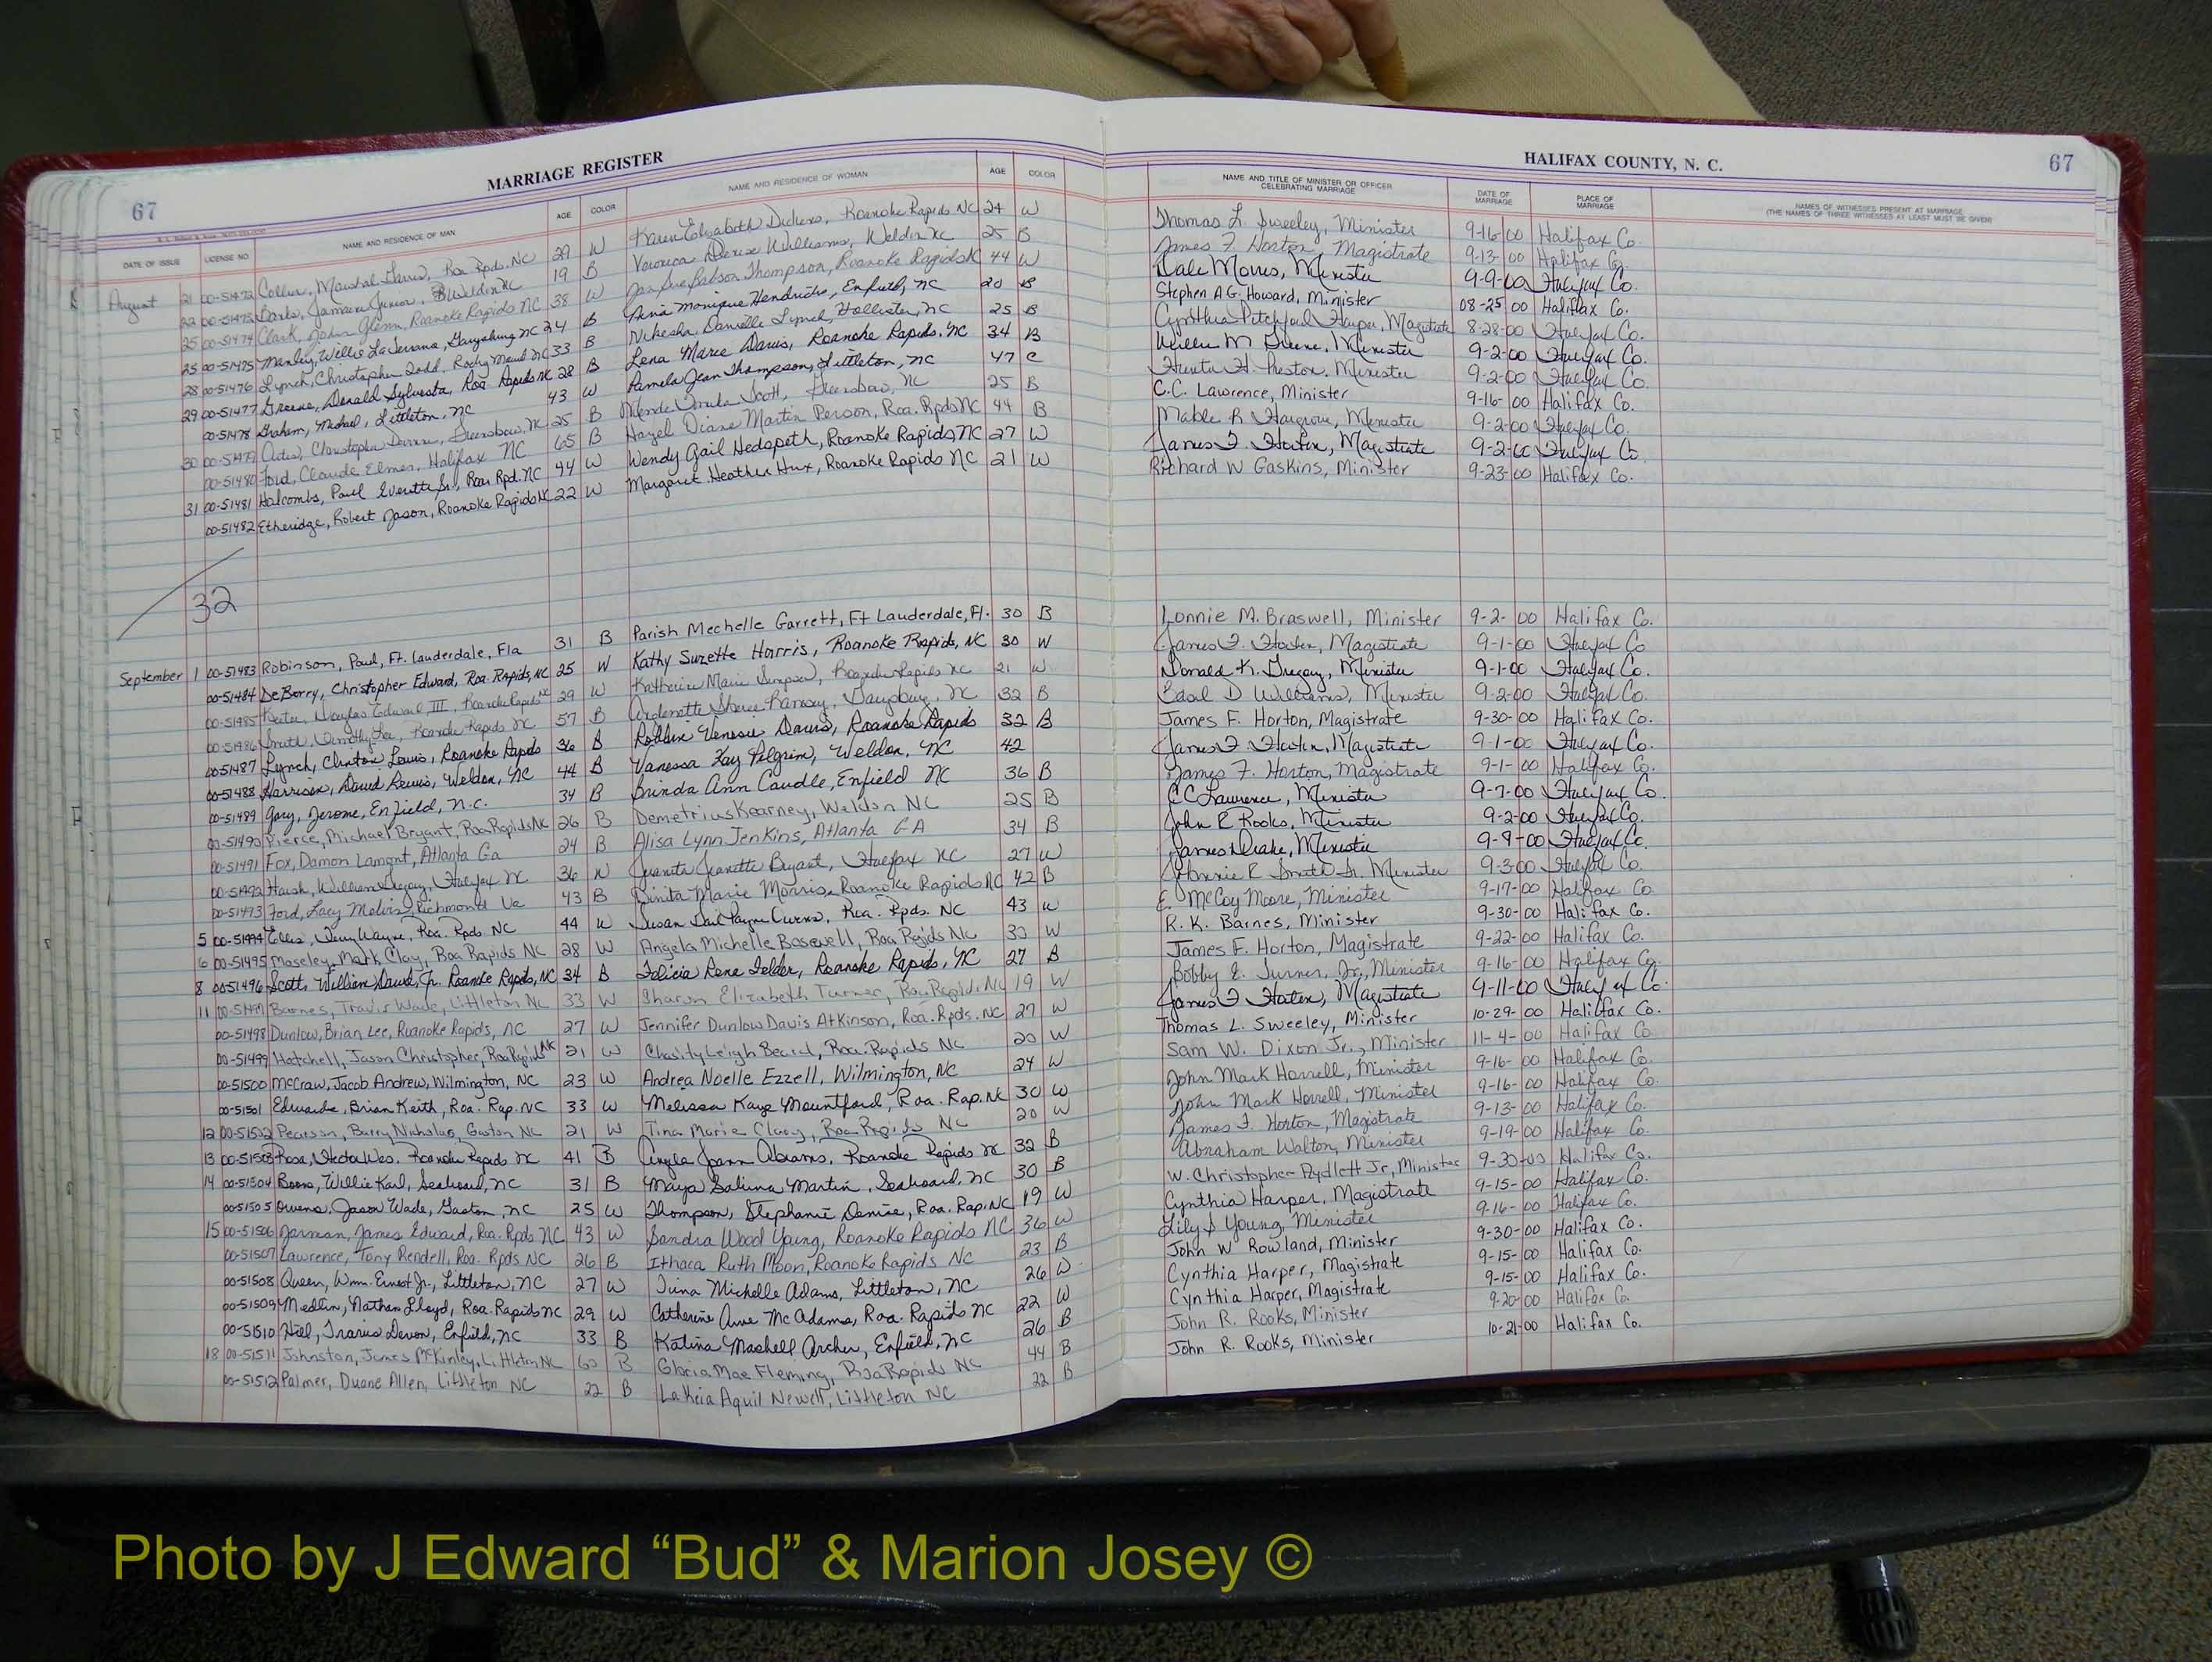 MARRIAGE REGISTER
HALIFAX COUNTY, N. C.
67
67
DATE OF ISSUE LICENSE NO. NAME AND RESIDENCE OF MAN AGE COLOR NAME AND RESIDENCE OF WOMAN AGE COLOR NAME AND TITLE OF MINISTER OR OFFICER CELEBRATING MARRIAGE DATE OF MARRIAGE PLACE OF MARRIAGE NAMES OF WITNESSES PRESENT AT MARRIAGE (THE NAMES OF THREE WITNESSES AT LEAST MUST BE GIVEN)
August 21 00-51472 Collier, Roa Rpds. NC 29 W Karen Elizabeth Dickens, Roanoke Rapids NC 24 W Thomas L. Sweeley, Minister 9-16-00 Halifax Co.
22 00-51473 Weldon NC 19 B Veronica Denise Williams, Weldon NC 25 B James F. Horton, Magistrate 9-13-00 Halifax Co.
25 00-51474 Clark, John Glenn, Roanoke Rapids NC 38 W Thompson, Roanoke Rapids NC 44 W Dale Minister 9-9-00 Halifax Co.
25 00-51475 Manley, Willie Garysburg NC 24 B Monique Hendricks, Enfield, NC 20 B Stephen A G. Howard, Minister 08-25 00 Halifax Co.
28 00-51476 Lynch, Christopher Todd, Rocky Mount NC 33 B Nikesha Danielle Lynch, Hollister, NC 25 B Cynthia Pitchford Harper, Magistrate 8-28-00 Halifax Co.
29 00-51477 Greene, Donald Sylvesta, Roa Rapids NC 28 B Lena Marie Davis, Roanoke Rapids, NC 34 B Willie M Greene, Minister 9-2-00 Halifax Co.
00-51478 Graham, Michael, Littleton, NC 43 W Pamela Jean Thompson, Littleton, NC 47 C Hunter H. Preston, Minister 9-2-00 Halifax Co.
30 00-51479 Christopher Greensboro, NC 25 B Scott, Greensboro, NC 25 B C.C. Lawrence, Minister 9-16-00 Halifax Co.
00-51480 Ford, Claude Elmer, Halifax NC 65 B Hazel Diane Martin Person, Roa. Rpds NC 44 B Mable R Hargrove, Minister 9-2-00 Halifax Co.
31 00-51481 Halcombs, Paul Everette Sr., Roa Rpd. NC 44 W Wendy Gail Hedspeth, Roanoke Rapids NC 27 W James F. Horton, Magistrate 9-2-00 Halifax Co
00-51482 Etheridge, Robert Jason, Roanoke Rapids NC 22 W Margaret Heather Hux, Roanoke Rapids NC 21 W Richard W Gaskins, Minister 9-23-00 Halifax Co.
32
September 1 00-51483 Robinson, Paul, Ft. Lauderdale, Fla 31 B Parish Mechelle Garrett, Ft Lauderdale, Fl. 30 B Lonnie M. Braswell, Minister 9-2-00 Halifax Co.
00-51484 DeBerry, Christopher Edward, Roa. Rapids, NC 25 W Kathy Suzette Harris, Roanoke Rapids, NC 30 W James F. Horton, Magistrate 9-1-00 Halifax Co
00-51485 Douglas Edward, III, Roanoke Rapids NC 29 W Katherine Marie Simpson, Roanoke Rapids NC 21 W Donald K. Minister 9-1-00 Halifax Co.
00-51486 Smith, Timothy Lee, Roanoke Rapids NC 57 B Garysburg, NC 32 B D Williams, Minister 9-2-00 Halifax Co.
00-51487 Lynch, Clinton Louis, Roanoke Rapids 36 B Robbin Davis, Roanoke Rapids 32 B James F. Horton, Magistrate 9-30-00 Halifax Co.
00-51488 Harrison, David Weldon, NC 44 B Vanessa Kay Pilgrim, Weldon, NC 42 James F. Horton, Magistrate 9-1-00 Halifax Co.
00-51489 Gary, Jerome, Enfield, N.C. 34 B Brinda Ann Caudle, Enfield NC 36 B James F. Horton, Magistrate 9-1-00 Halifax Co.
00-51490 Pierce, Michael Bryant, Roa Rapids NC 26 B Demetrius Kearney, Weldon NC 25 B C C Lawrence, Minister 9-7-00 Halifax Co.
00-51491 Fox, Damon Lamont, Atlanta Ga 24 B Alisa Lynn Jenkins, Atlanta GA 34 B John R Rooks, Minister 9-2-00 Halifax Co.
00-51492 William Gregory, Halifax NC 36 W Juanita Jeanette Bryant, Halifax NC 27 W James Drake, Minister 9-9-00 Halifax Co.
00-51493 Ford, Lacy Melvin, Richmond Va 43 B Marie Morris, Roanoke Rapids NC 42 B R Smith Sr. Minister 9-3-00 Halifax Co.
5 00-51494 Ellis, Terry Wayne, Roa. Rpds. NC 44 W Susan Gail Payne Roa. Rpds. NC 43 W E. McCoy Moore, Minister 9-17-00 Halifax Co
6 00-51495 Moseley, Mark Clay, Roa Rapids NC 28 W Angela Michelle Bosewell, Roa Rapids NC 33 W R. K. Barnes, Minister 9-30-00 Halifax Co.
8 00-51496 Scott, William David, Jr. Roanoke Rapids, NC 34 B Felicia Rena Felder, Roanoke Rapids, NC 27 B James F. Horton, Magistrate 9-22-00 Halifax Co.
11 00-51497 Barnes, Travis Wade, Littleton NC 33 W Sharon Elizabeth Turner, Roa. Rapids, NC 19 W Bobby E. Turner, Jr., Minister 9-16-00 Halifax Co.
00-51498 Dunlow, Brian Lee, Roanoke Rapids, NC 27 W Jennifer Dunlow Davis Atkinson, Roa. Rpds. NC 27 W James F Horton, Magistrate 9-11-00 Halifax Co.
00-51499 Hatchell, Jason Christopher, Roa Rapids NC 21 W Chasity Leigh Beard, Roa. Rapids NC 20 W Thomas L. Sweeley, Minister 10-29-00 Halifax Co.
00-51500 McCraw, Jacob Andrew, Wilmington, NC 23 W Andrea Noelle Ezzell, Wilmington, NC 24 W Sam W. Dixon Jr., Minister 11-4-00 Halifax Co
00-51501 Edwards, Brian Keith, Roa. Rap. NC 33 W Melissa Kaye Mountford, Roa. Rap. NC 30 W John Mark Harrell, Minister 9-16-00 Halifax Co.
12 00-51502 Pearson, Barry Nicholas, Gaston NC 21 W Tina Marie Clary, Roa Rapids NC 20 W John Mark Harrell, Minister 9-16-00 Halifax Co.
13 00-51503 Roanoke Rapids NC 41 B Angela Joann Abrams, Roanoke Rapids NC 32 B James F. Horton, Magistrate 9-13-00 Halifax Co.
14 00-51504 Boone, Willie Karl, Seaboard, NC 31 B Maya Salina Martin, Seaboard, NC 30 B Abraham Walton, Minister 9-19-00 Halifax Co.
00-51505 Owens, Jason Wade, Gaston, NC 25 W Thompson, Stephanie Denise, Roa. Rap. NC 19 W W. Christopher Aydlett Jr, Minister 9-30-00 Halifax Co.
15 00-51506 Jarman, James Edward, Roa. Rpds NC 43 W Sandra Wood Young, Roanoke Rapids NC 36 W Cynthia Harper, Magistrate 9-15-00 Halifax Co.
00-51507 Lawrence, Tony Rendell, Roa. Rpds NC 26 B Ithaca Ruth Moon, Roanoke Rapids NC 23 B Lily S Young, Minister 9-16-00 Halifax Co.
00-51508 Queen, Wm. Ernest Jr., Littleton, NC 27 W Tina Michelle Adams, Littleton, NC 26 W John W Rowland, Minister 9-30-00 Halifax Co.
00-51509 Medlin, Nathan Lloyd, Roa. Rapids NC 29 W Catherine Anne McAdams, Roa. Rapids NC 22 W Cynthia Harper, Magistrate 9-15-00 Halifax Co.
00-51510 Hill, Travis Devon, Enfield, NC 33 B Katina Mashell Archer, Enfield, NC 26 B Cynthia Harper, Magistrate 9-15-00 Halifax Co.
18 00-51511 Johnston, James McKinley, Littleton NC 60 B Gloria Mae Fleming, Roa Rapids NC 44 B John R. Rooks, Minister 9-20-00 Halifax Co
00-51512 Palmer, Duane Allen, Littleton NC 22 B LaKeia Aquil Newell, Littleton NC 22 B John R. Rooks, Minister 10-21-00 Halifax Co.
Photo by J Edward “Bud” & Marion Josey ©